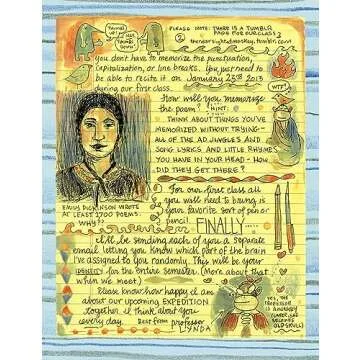 PLEASE NOTE: THERE IS A TUMBLR
PAGE FOR OUR CLASS:
you don't have to memorize the punctuation,
capitalization, or line breaks. You just need
to be able to recite it on January 23rd 2013
during our first class.
WTF?
How will you memorize
the poem? HINT:
THINK ABOUT THINGS YOU'VE
MEMORIZED WITHOUT TRYING—
ALL OF THE AD JINGLES AND
SONG LYRICS AND LITTLE RHYMES
YOU HAVE IN YOUR HEAD - HOW
DID THEY GET THERE?
EMILY DICKINSON WROTE
AT LEAST 1700 POEMS.
WHY?
For our first class all
you will need to bring is
your favorite sort of pen or
pencil.
FINALLY
I'll be sending each of you a separate
email letting you know which part of the brain
I've assigned to you randomly. This will be your
IDENTITY for the entire semester. (More about that
when we meet)
Please know how happy I am
about our upcoming EXPEDITION
together. I think about you
every day. Best from professor
LYNDA
YES, THE
PROFESSOR
IS ALREADY
OLD SKULL!